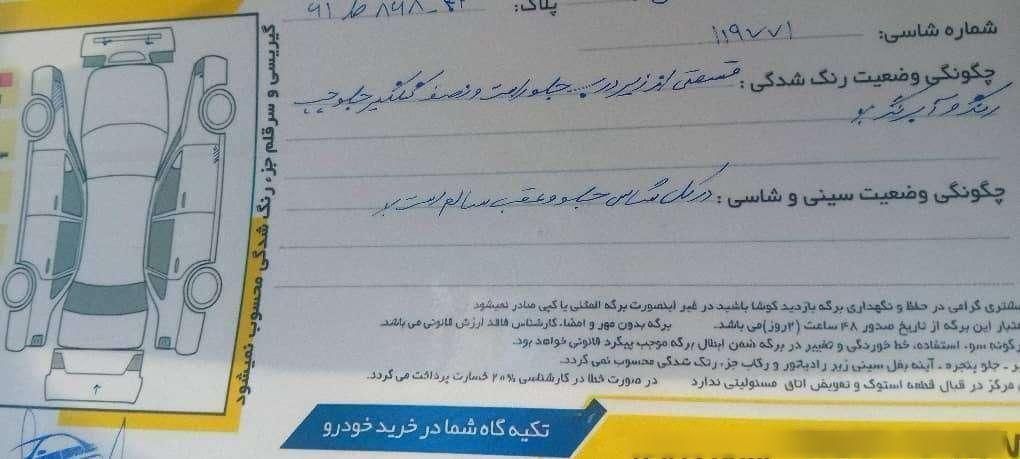 پلاک:
شماره شاسی: ۱۱۹۷۷۱
چگونگی وضعیت رنگ شدگی: قسمتی از زیر درب جلو راست و نصف گلگیر جلو چپ
رنگ و آبرنگ
چگونگی وضعیت سینی و شاسی: در کل شاسی جلو و عقب سالم است
گیریسی و سرقلم جزء رنگ شدگی محسوب نمیشود
مشتری گرامی در حفظ و نگهداری برگه بازدید کوشا باشید در غیر اینصورت برگه المثنی یا کپی صادر نمیشود
اعتبار این برگه از تاریخ صدور ۴۸ ساعت (۲روز) می باشد. برگه بدون مهر و امضاء کارشناس فاقد ارزش قانونی می باشد.
گونه سوء استفاده، خط خوردگی و تغییر در برگه ضمن ابطال برگه موجب پیگرد قانونی خواهد بود.
جلو پنجره ـ آینه بغل سینی زیر رادیاتور و رکاب جزء رنگ شدگی محسوب نمی گردد.
مرکز در قبال قطعه استوک و تعویض اتاق مسئولیتی ندارد در صورت خطا در کارشناسی ۲۰٪ خسارت پرداخت می گردد.
تکیه گاه شما در خرید خودرو